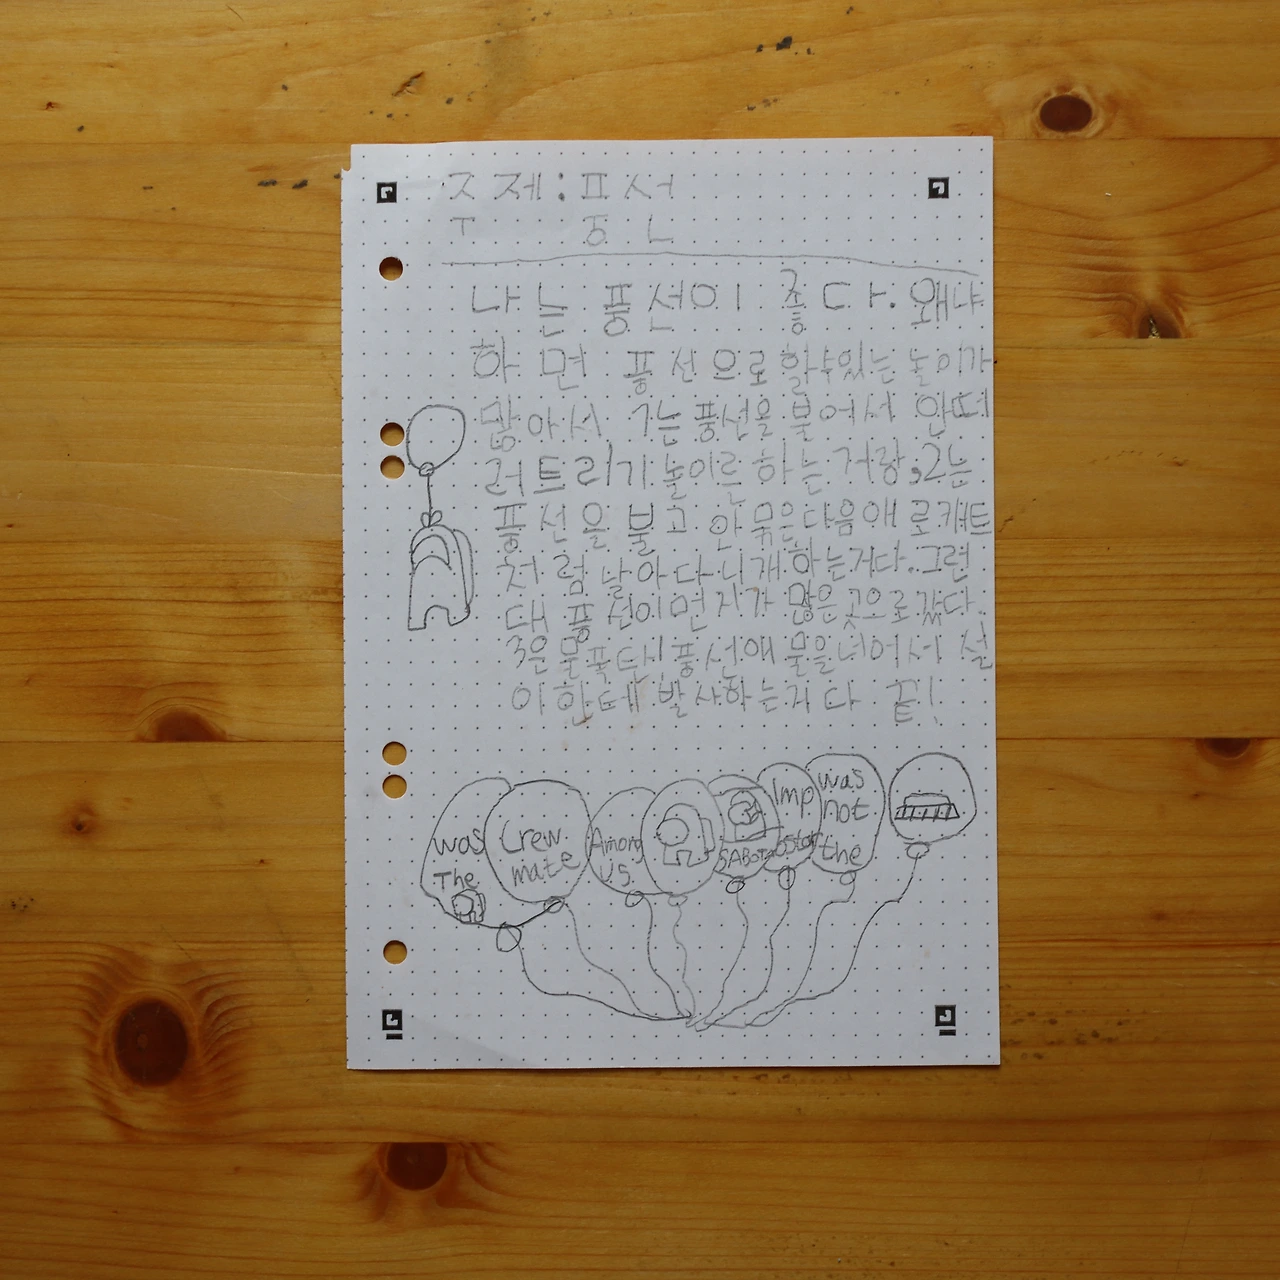 주제: 풍선
나는 풍선이 좋다. 왜냐
하면 풍선으로 할수있는 놀이가
많아서, 1는 풍선을 불어서 안떠
러트리기 놀이를 하는 거랑, 2는
풍선을 불고 안 묶은다음애 로캐트
처럼 날아다니개 하는거다. 그런
대 풍선이 먼지가 많은 곳으로 갔다.
3은 물폭탄! 풍선애 물을 너어서 설
이한테 발사하는거다 끝!
was
The
Crew
mate
Among
US
SABOTA
Imp
ostor
was
not
the